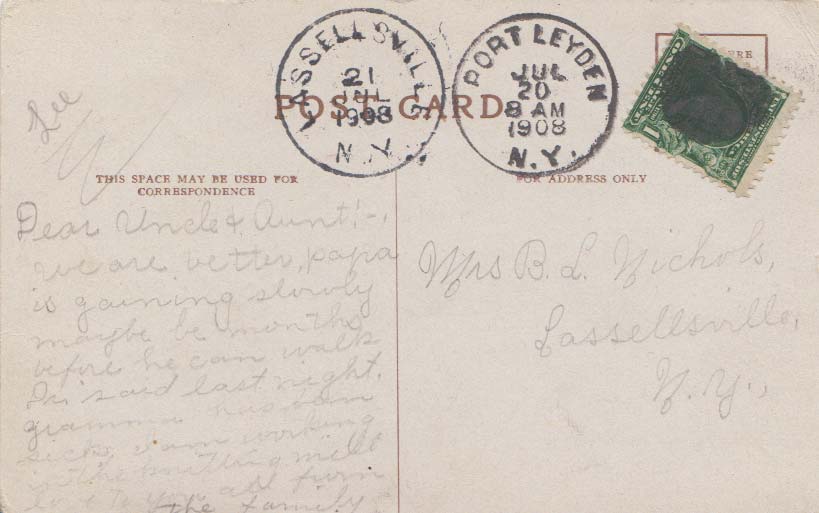 LASSELLSVILLE
21
JUL
1908
N.Y.
PORT LEYDEN
JUL
20
8 AM
1908
N.Y.
POST CARD
ERE
1
Lee
THIS SPACE MAY BE USED FOR
CORRESPONDENCE
FOR ADDRESS ONLY
Dear Uncle & Aunt:-
we are better, papa
is gaining slowly
maybe be months
before he can walk
Dr. said last night.
gramma has been
sick, I am working
in the knitting mill
love to you all from
the family
Mrs B. L. Nichols,
Lassellsville,
N.Y.,